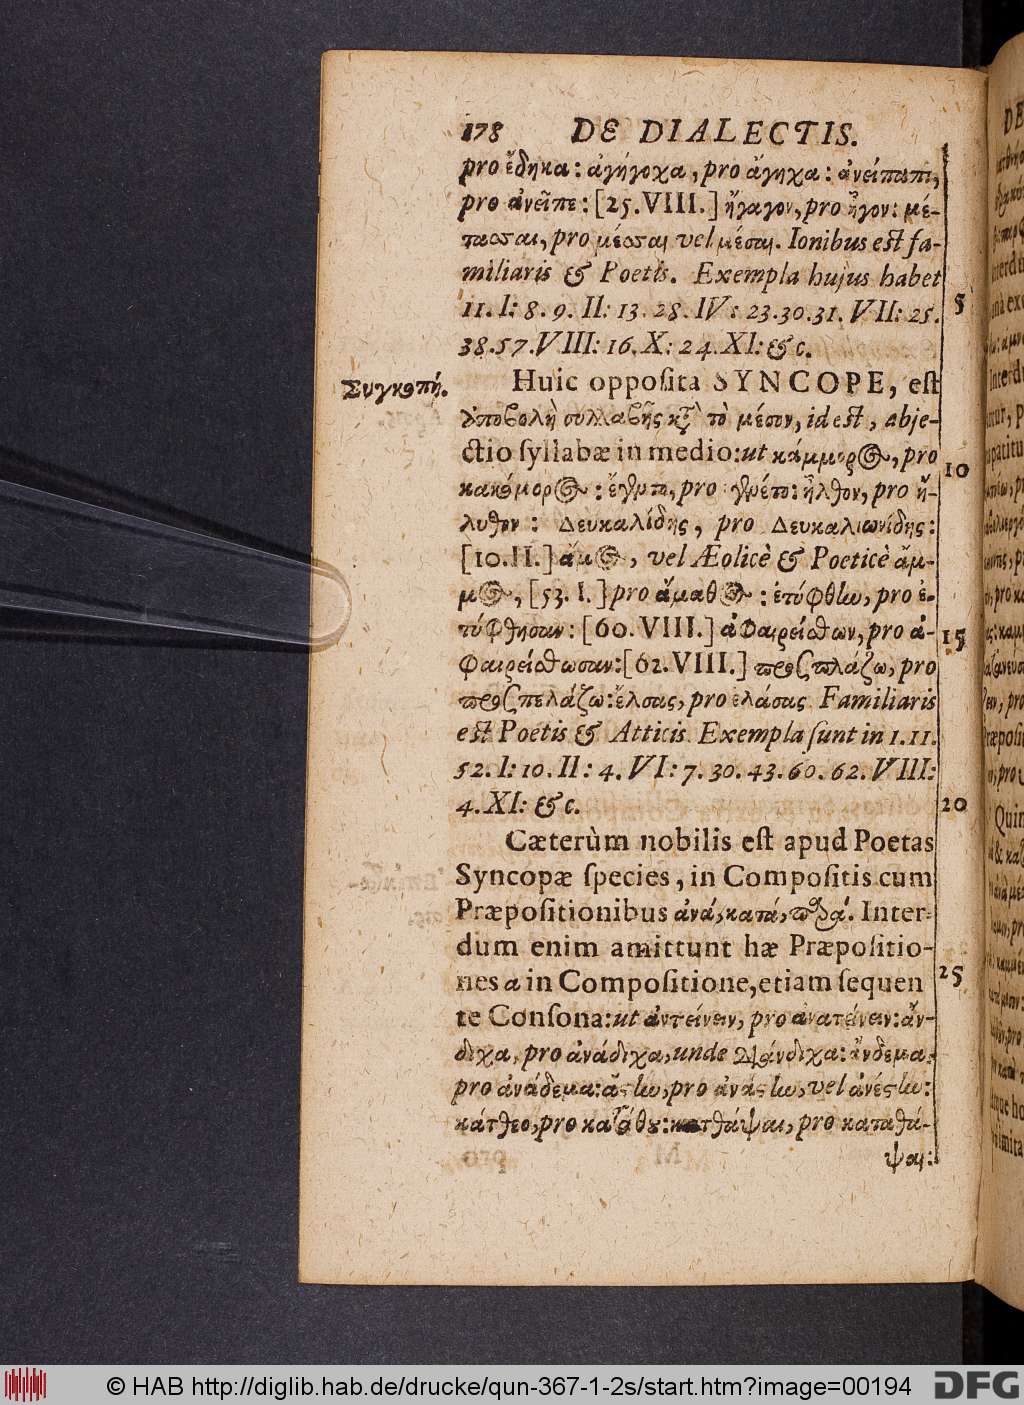 178 DE DIALECTIS.
pro ἔδηκα: ἀγήγοχα, pro ἄγηχα: ἀνείπωπι,
pro ἀνεῖπε: [25. VIII.] ἤγαγον, pro ἦγον: μέ-
pro μέσαι vel μέσῃ. Ionibus est fa-
miliaris & Poetis. Exempla hujus habet
11. I: 8. 9. II: 13. 28. IV: 23. 30. 31. VII: 25. 5
38. 57. VIII: 16. X: 24. XI: &c.
Συγκοπή. Huic opposita SYNCOPE, est
ὑποβολὴ συλλαβῆς κατὰ τὸ μέσον, id est, abje-
ctio syllabæ in medio: ut κάμμορος, pro 10
κακόμορος: ἔγρετο, pro ἦλθον, pro ἤ-
λυθον: Δευκαλίδης, pro Δευκαλιωνίδης:
[10. II.] ἄμος, vel Æolicè & Poeticè ἄμ-
μος, [53. I.] pro ἄμαθος: ἐτύφθων, pro ἐ-
τύφθησαν: [60. VIII.] ἀφαιρείσθων, pro ἀ- 15
φαιρείσθωσαν: [62. VIII.] προσπλάζω, pro
προσπελάζω: ἔλσας, pro ἐλάσας. Familiaris
est Poetis & Atticis. Exempla sunt in 1. 11.
52. I: 10. II: 4. VI: 7. 30. 43. 60. 62. VIII:
4. XI: &c. 20
Cæterùm nobilis est apud Poetas
Syncopæ species, in Compositis cum
Præpositionibus ἀνά, κατά, παρά. Inter-
dum enim amittunt hæ Præpositio-
nes a in Compositione, etiam sequen 25
te Consona: ut ἀντείνειν, pro ἀνατείνειν: ἄν-
διχα, pro ἀνάδιχα, unde διάνδιχα: ἄνδεμα
pro ἀνάδεμα: ἄςω, pro ἀνάςω, vel ἀνέςω:
κάτθεο, pro κατάθου: κατθάψαι, pro καταθά-
ψαι:
© HAB http://diglib.hab.de/drucke/qun-367-1-2s/start.htm?image=00194 DFG